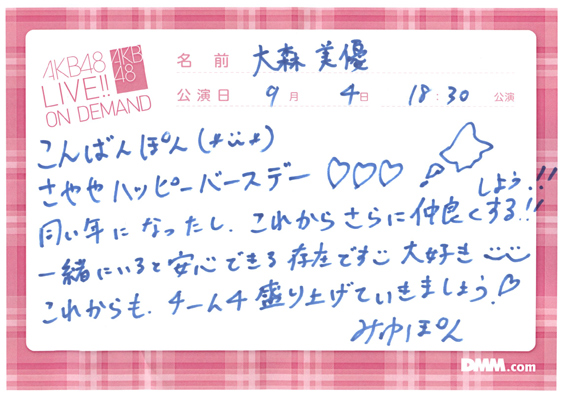 AKB48
LIVE!!
ON DEMAND
AKB
48
名前 大森美優
公演日 9月 4日 18:30 公演
こんばんぽん(*¨*)
さややハッピーバースデー♡♡♡
しよう!!
同い年になったし、これからさらに仲良くする!!
一緒にいると安心できる存在です 大好き
これからも、チーム4盛り上げていきましょう♡
みゆぽん
DMM.com